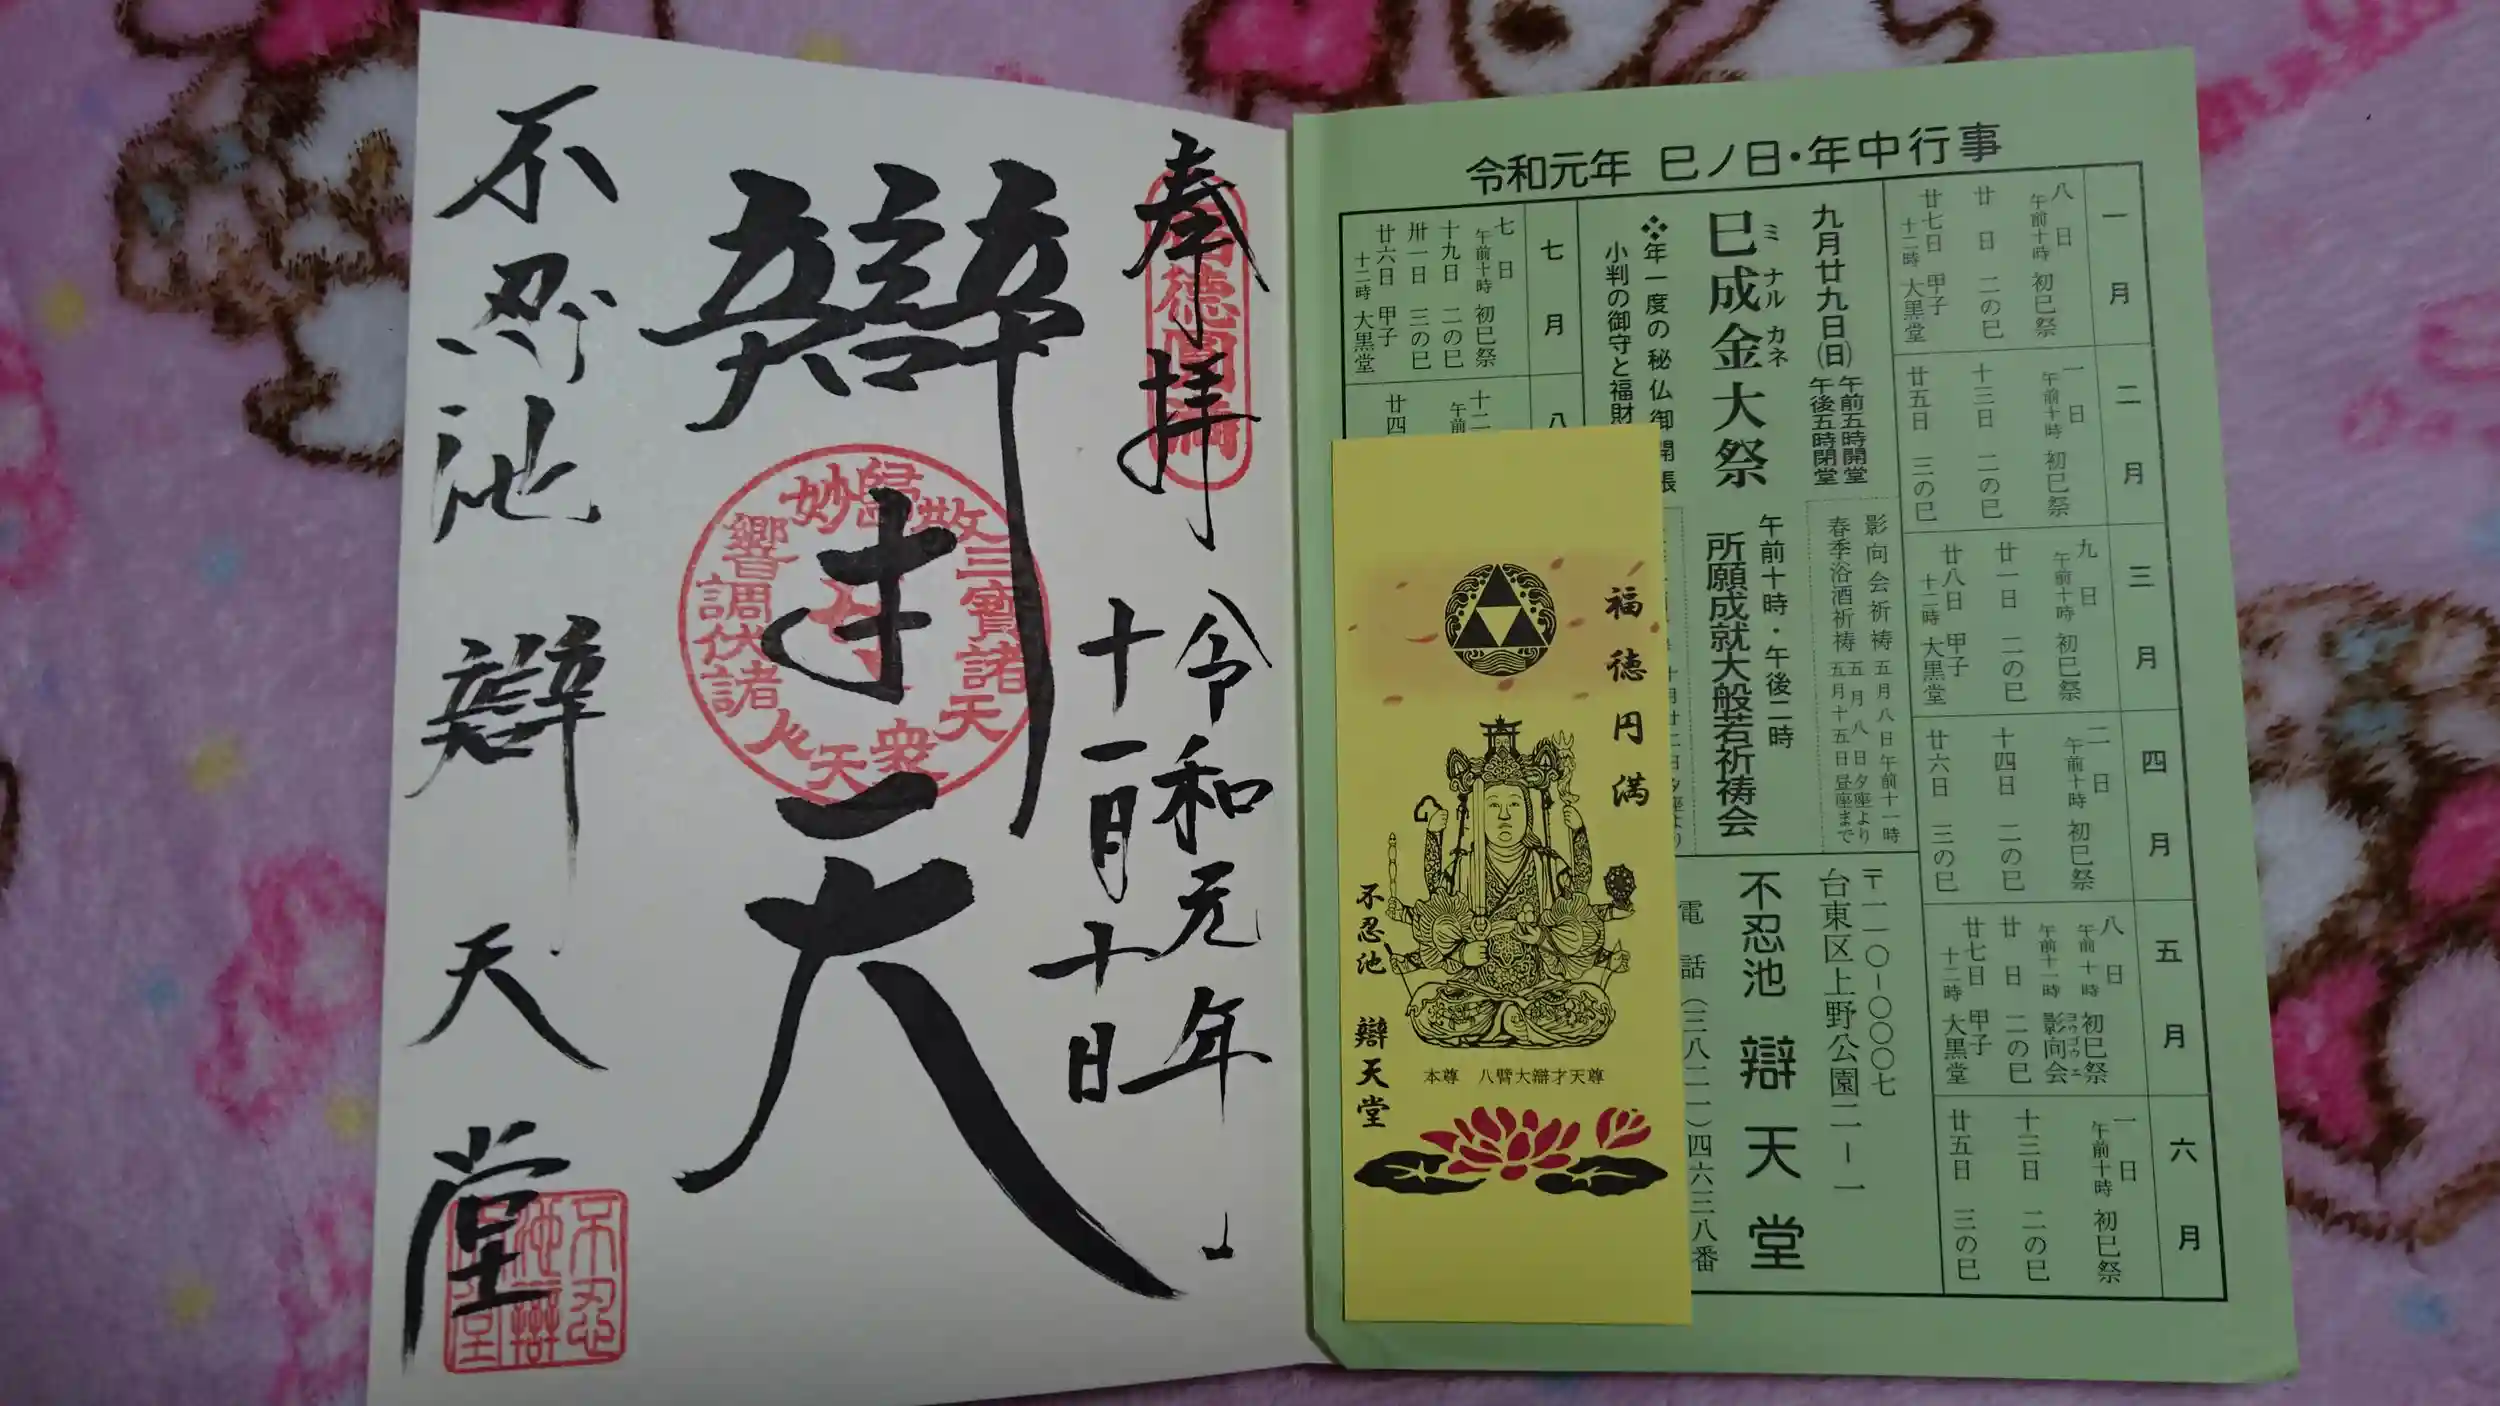 奉拝
令和元年
十一月十日
辯才天
不忍池 辯天堂
歸敬三寶諸天
衆天
妙
響調伏諸
不忍
池辯
令和元年 巳ノ日・年中行事
一月
八日 午前十時 初巳祭
廿日 二の巳
廿七日 十二時 甲子 大黒堂
二月
一日 午前十時 初巳祭
十三日 二の巳
廿五日 三の巳
三月
九日 午前十時 初巳祭
廿一日 二の巳
廿八日 十二時 甲子 大黒堂
四月
二日 午前十時 初巳祭
十四日 二の巳
廿六日 三の巳
五月
八日 午前十時 初巳祭
午前十一時 影向会 ヨウゴウエ
廿日 二の巳
廿七日 十二時 甲子 大黒堂
六月
一日 午前十時 初巳祭
十三日 二の巳
廿五日 三の巳
九月廿九日(日) 午前五時開堂 午後五時閉堂
巳成金大祭
ミナルカネ
年一度の秘仏御開張
小判の御守と福財
午前十時・午後二時
所願成就大般若祈祷会
影向会祈祷 五月八日午前十一時
春季浴酒祈祷 五月八日夕座より 五月十五日昼座まで
七月
七日 午前十時 初巳祭
十九日 二の巳
卅一日 三の巳
廿六日 十二時 甲子 大黒堂
八
十二
午前
廿四
〒一一〇-〇〇〇七
台東区上野公園二-一
不忍池 辯天堂
電話(三八二一)四六三八番
福徳円満
不忍池 辯天堂
本尊 八臂大辯才天尊